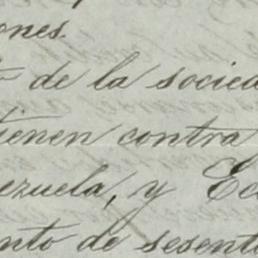 ones.
de la socieda
tienen contra
ezuela, y Ec
nto de sesent